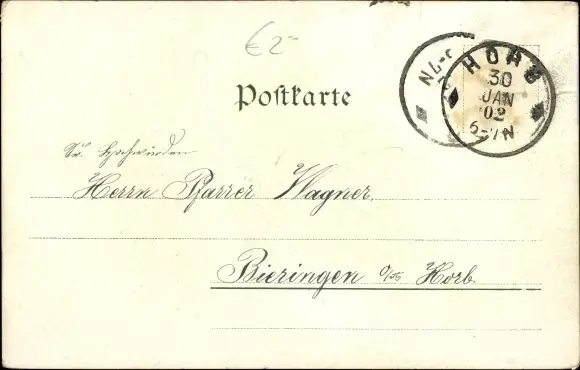 € 2-
HORB
30
JAN
02
6-7N
6-7N
Postkarte
Sr. Hochwürden
Herrn Pfarrer Wagner.
Bieringen O/A Horb.